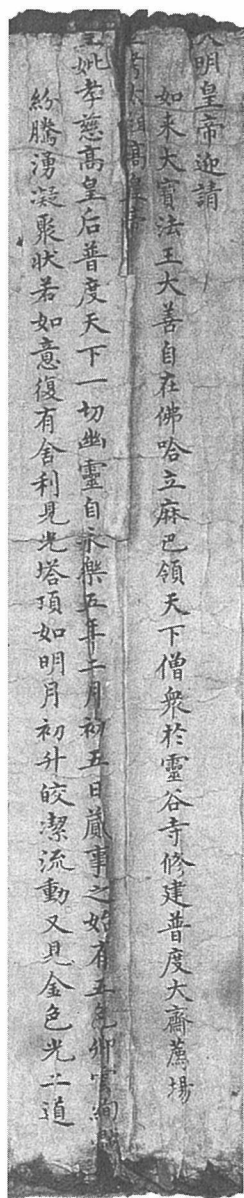 明皇帝迎請
如来大寶法王大善自在佛哈立麻巴領天下僧衆於靈谷寺修建普度大齋薦揚
考太祖高皇帝
妣孝慈高皇后普度天下一切幽靈自永樂五年二月初五日蕆事之始有五色卿雲絢
紛騰湧凝聚狀若如意復有舍利見光塔頂如明月初升皎潔流動又見金色光二道